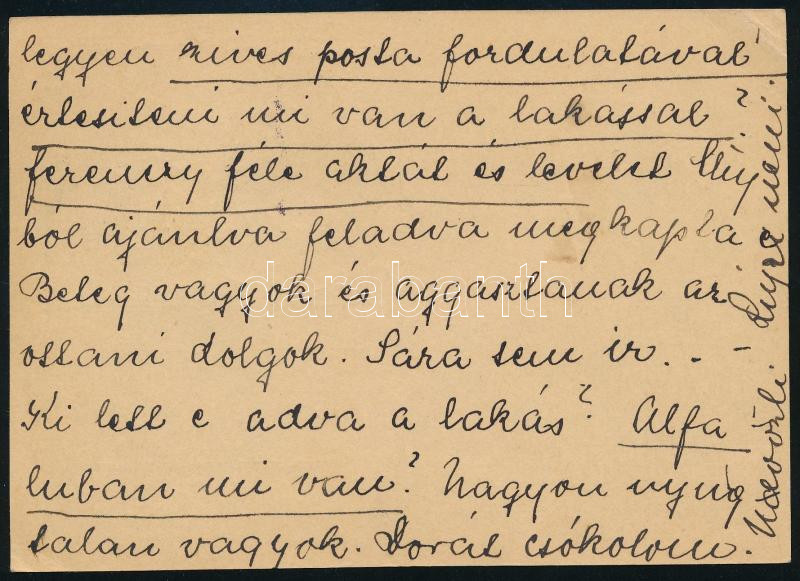 legyen szives posta fordulatával
értesiteni mi van a lakással?
ferenczy féle aktát és levelet
ból ajánlva feladva megkapta
Beteg vagyok és aggasztanak az
ottani dolgok. Sára sem ir. . -
Ki lett e adva a lakás? Alfa
luban mi van? Nagyon nyug
talan vagyok. Dorát csókolom.
Üdvözli néni
darabanth